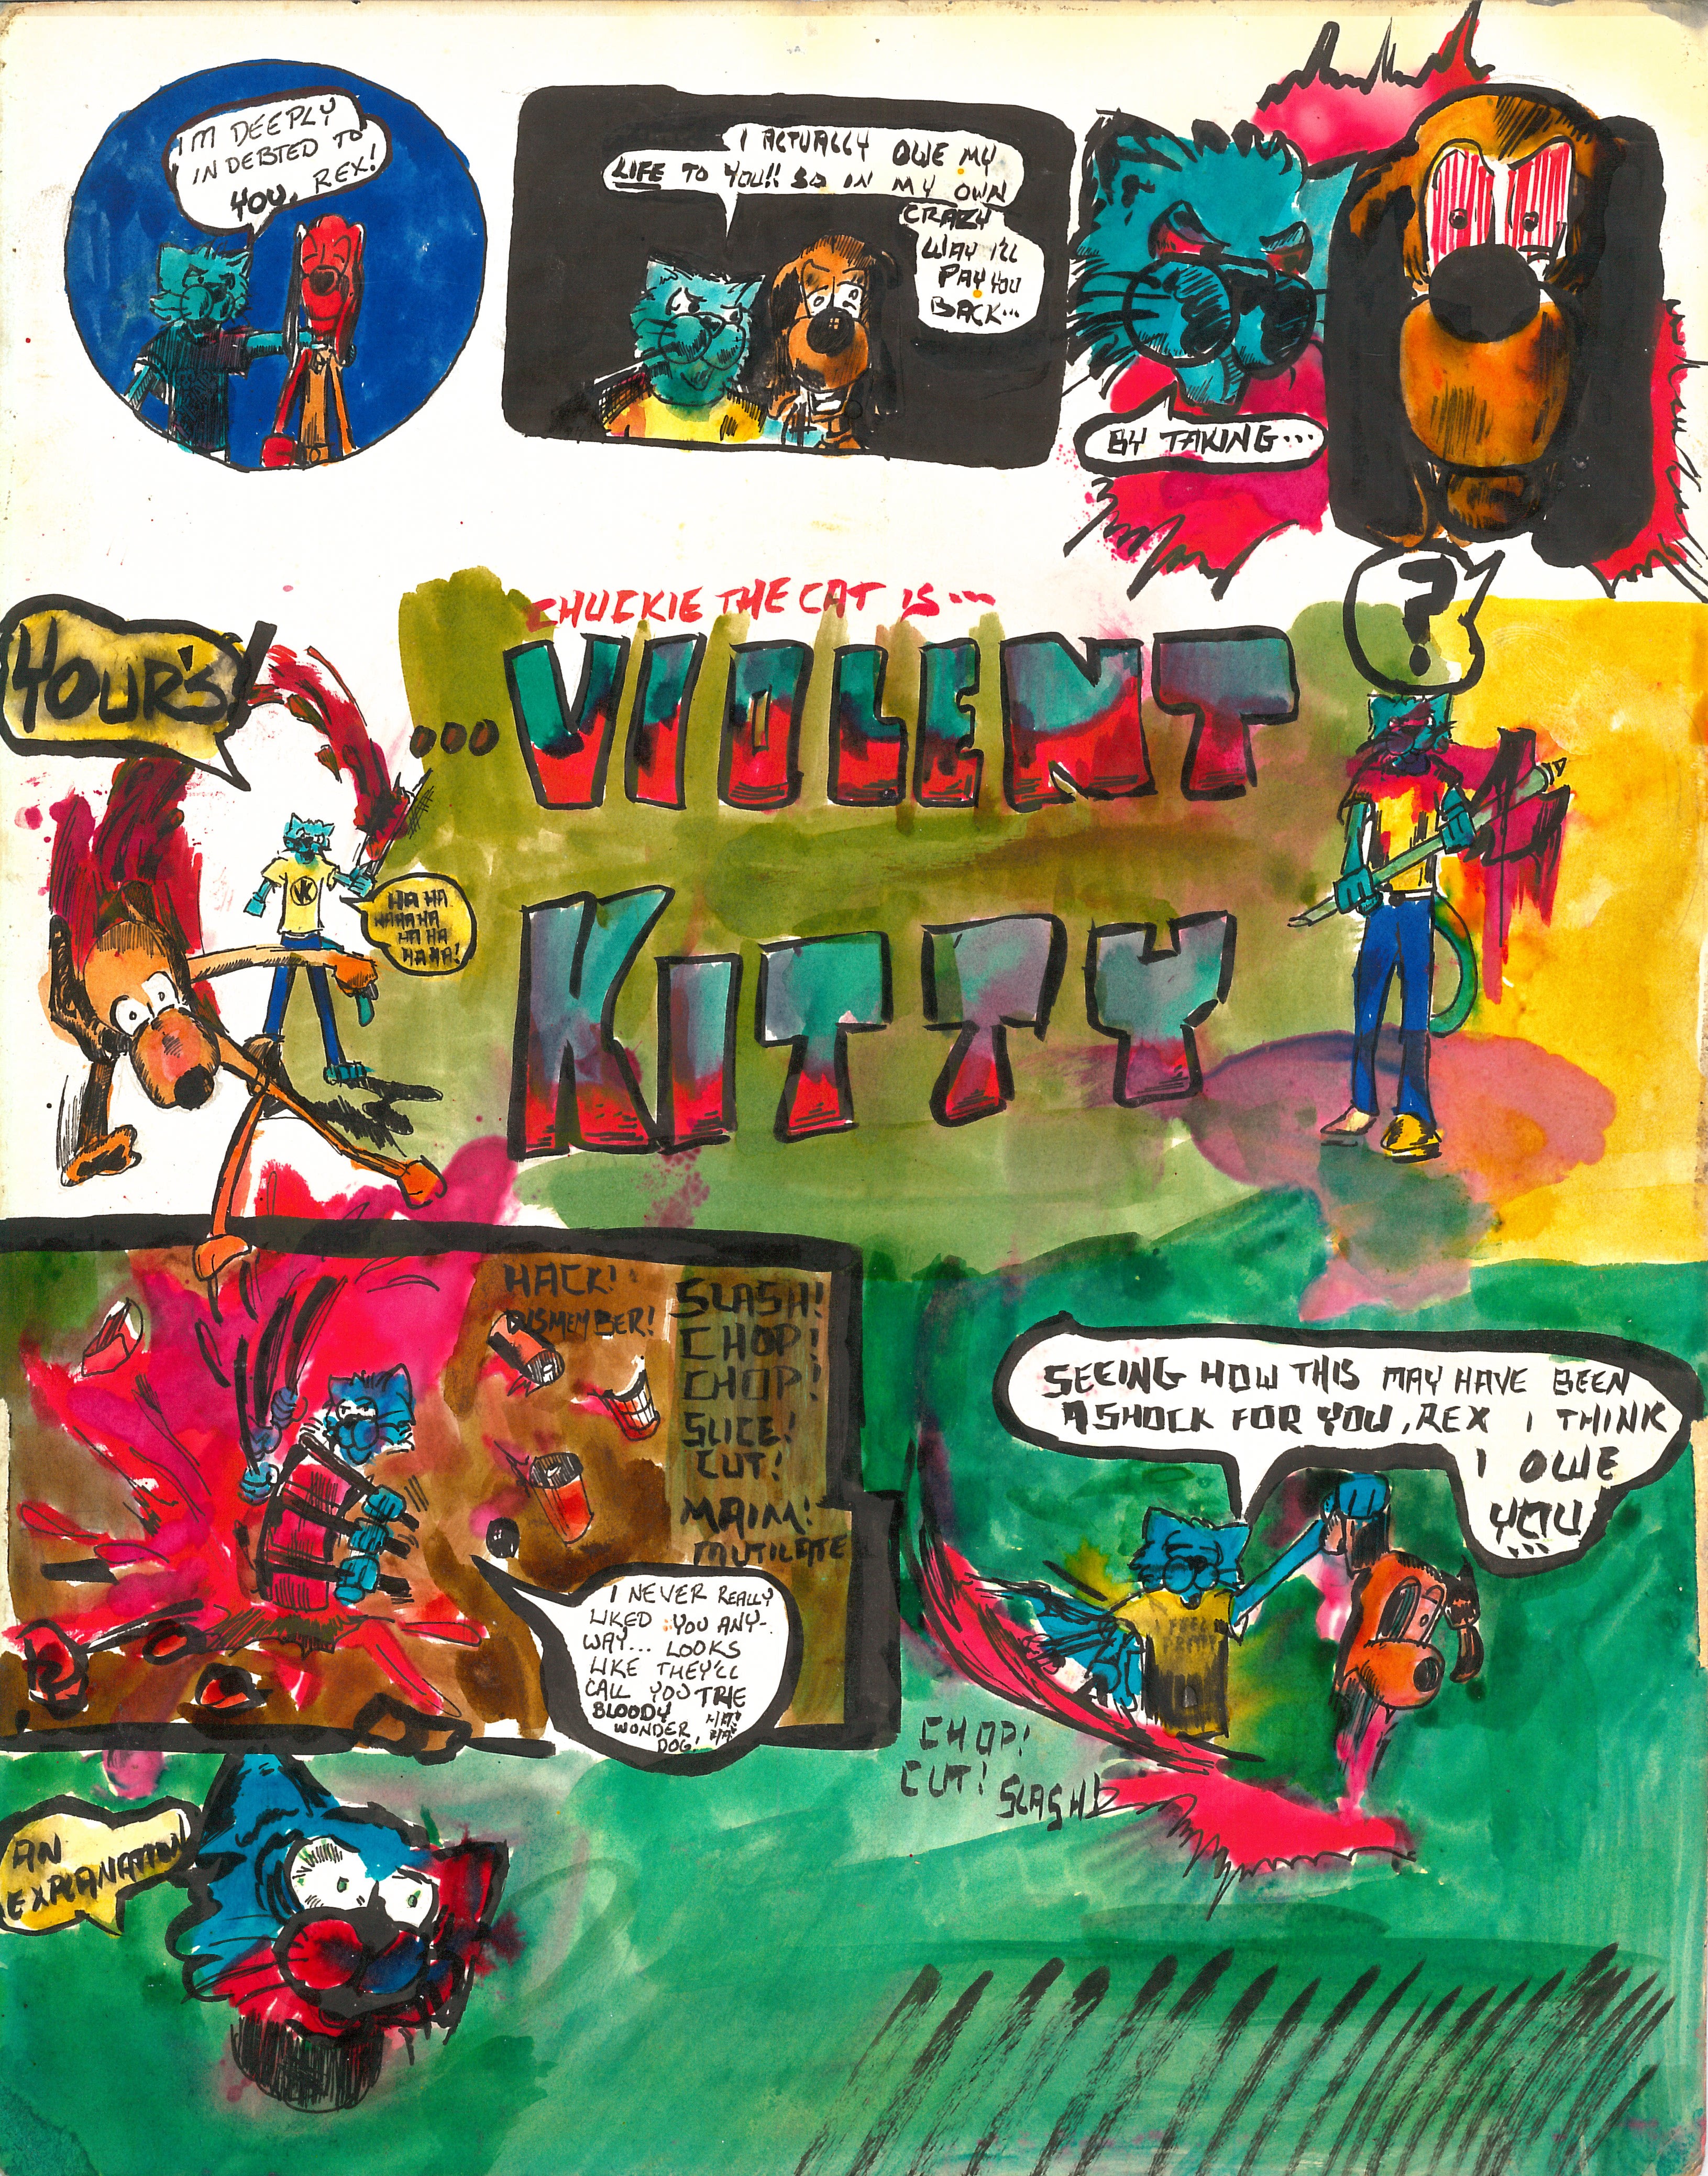 I'M DEEPLY
INDEBTED TO
YOU, REX!
I ACTUALLY OWE MY
LIFE TO YOU!! SO IN MY OWN
CRAZY
WAY I'LL
PAY YOU
BACK...
BY TAKING...
YOUR'S!
HA HA
HAHAHA
HA HA
HAHA!
CHUCKIE THE CAT IS...
...VIOLENT
KITTY
?
VK
HACK!
DISMEMBER!
SLASH!
CHOP!
CHOP!
SLICE!
CUT!
MAIM!
MUTILATE
I NEVER REALLY
LIKED YOU ANY-
WAY... LOOKS
LIKE THEY'LL
CALL YOU THE
BLOODY HA!
WONDER HA!
DOG!
SEEING HOW THIS MAY HAVE BEEN
A SHOCK FOR YOU, REX I THINK
I OWE
YOU
...
I FEEL
PRETTY
CHOP!
CUT! SLASH!
AN
EXPLANATION